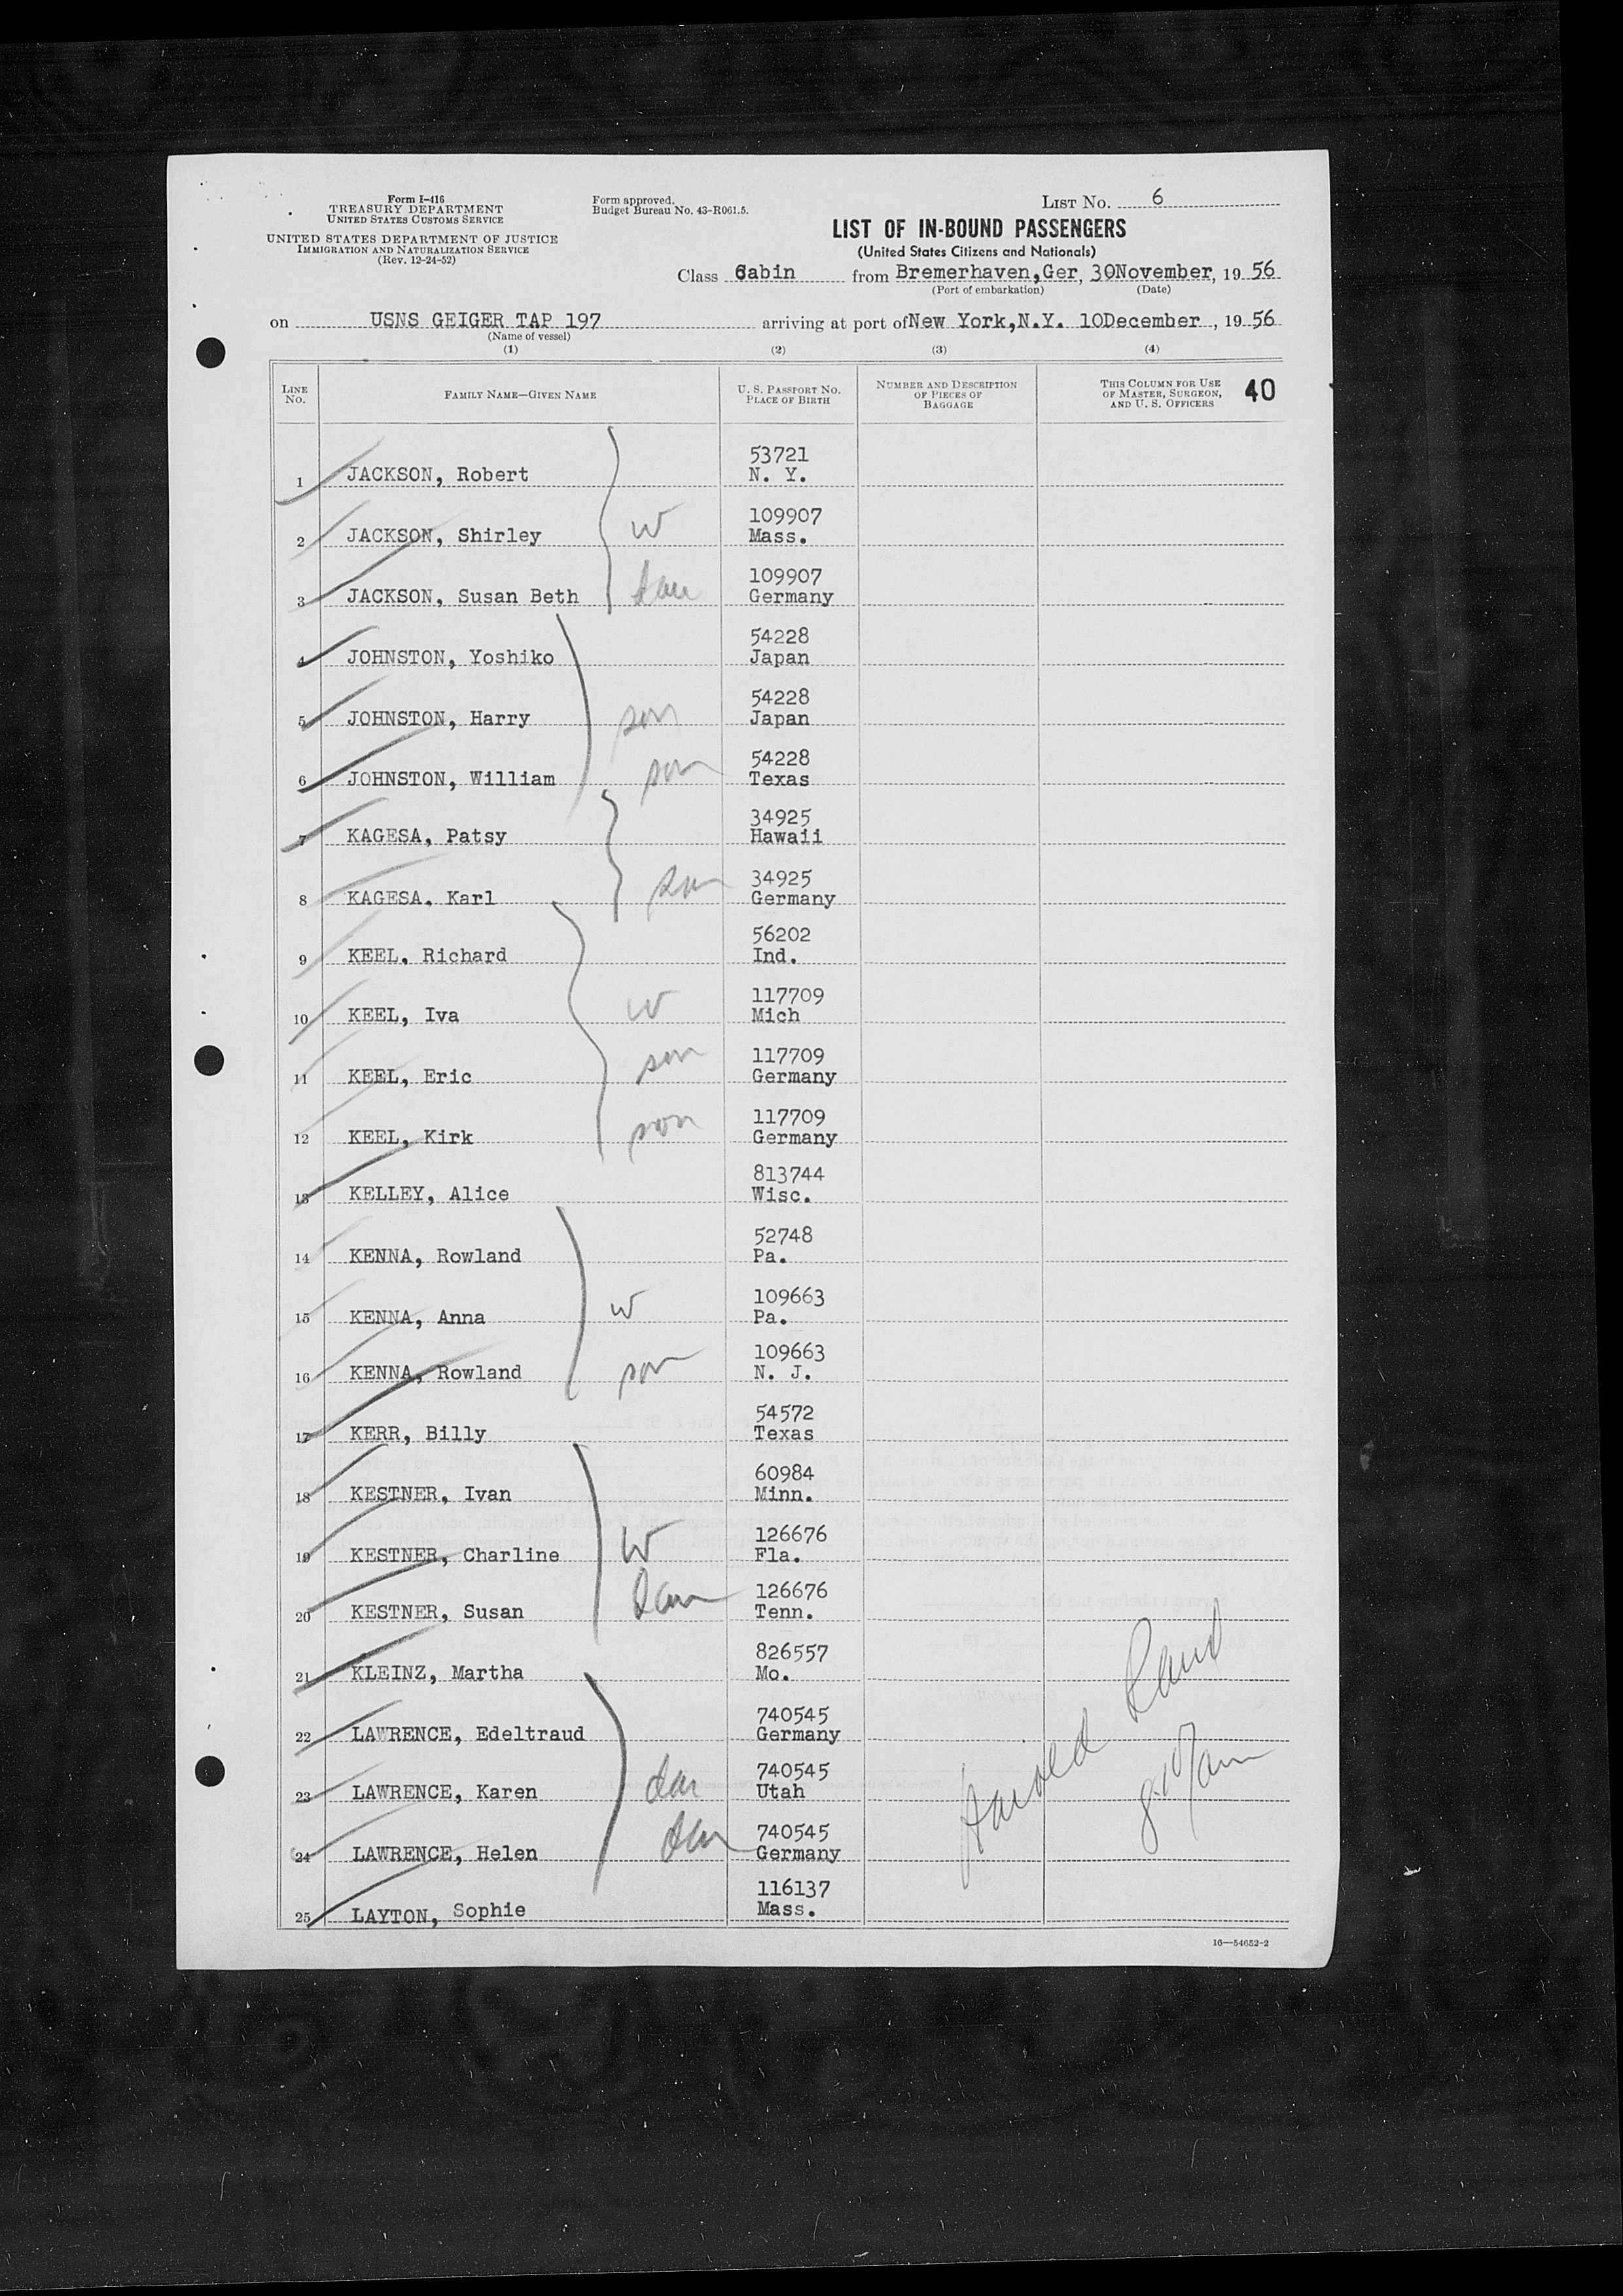 Form I-416
TREASURY DEPARTMENT
UNITED STATES CUSTOMS SERVICE
UNITED STATES DEPARTMENT OF JUSTICE
IMMIGRATION AND NATURALIZATION SERVICE
(Rev. 12-24-52)
Form approved.
Budget Bureau No. 43-R061.5.
LIST NO. 6
LIST OF IN-BOUND PASSENGERS
(United States Citizens and Nationals)
Class Cabin from Bremerhaven,Ger, 30November, 19 56
(Port of embarkation) (Date)
on USNS GEIGER TAP 197 arriving at port of New York,N.Y. 10December, 19 56
(Name of vessel)
(1) (2) (3) (4)
LINE NO. FAMILY NAME—GIVEN NAME U. S. PASSPORT NO. PLACE OF BIRTH NUMBER AND DESCRIPTION OF PIECES OF BAGGAGE THIS COLUMN FOR USE OF MASTER, SURGEON, AND U. S. OFFICERS 40
53721
1 JACKSON, Robert N. Y.
109907
2 JACKSON, Shirley w Mass.
109907
3 JACKSON, Susan Beth dau Germany
54228
4 JOHNSTON, Yoshiko Japan
54228
5 JOHNSTON, Harry son Japan
54228
6 JOHNSTON, William son Texas
34925
7 KAGESA, Patsy Hawaii
34925
8 KAGESA. Karl son Germany
56202
9 KEEL. Richard Ind.
117709
10 KEEL, Iva w Mich
117709
11 KEEL, Eric son Germany
117709
12 KEEL, Kirk son Germany
813744
13 KELLEY, Alice Wisc.
52748
14 KENNA, Rowland Pa.
109663
15 KENNA, Anna w Pa.
109663
16 KENNA, Rowland son N. J.
54572
17 KERR, Billy Texas
60984
18 KESTNER, Ivan Minn.
126676
19 KESTNER, Charline W Fla.
126676
20 KESTNER, Susan dau Tenn.
826557
21 KLEINZ, Martha Mo.
740545
22 LAWRENCE, Edeltraud Germany
740545
23 LAWRENCE, Karen dau Utah
740545
24 LAWRENCE, Helen dau Germany
116137
25 LAYTON, Sophie Mass.
Harold
16—54652-2